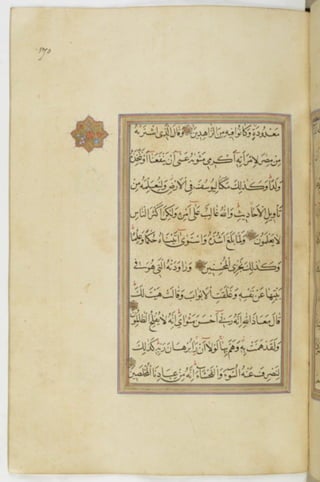 مَعْدُودَةٍ وَكَانُوا فِيهِ مِنَ الزَّاهِدِينَ وَقَالَ الَّذِي اشْتَرٰيهُ
مِنْ مِصْرَ لِامْرَأَتِهِ أَكْرِمِي مَثْوٰيهُ عَسٰى أَنْ يَنْفَعَنَا أَوْ نَتَّخِذَهُ
وَلَدًا وَكَذٰلِكَ مَكَّنَّا لِيُوسُفَ فِي الْأَرْضِ وَلِنُعَلِّمَهُ مِنْ
تَأْوِيلِ الْأَحَادِيثِ وَاللّٰهُ غَالِبٌ عَلٰى أَمْرِهِ وَلٰكِنَّ أَكْثَرَ النَّاسِ
لَا يَعْلَمُونَ وَلَمَّا بَلَغَ أَشُدَّهُ وَاسْتَوٰى آتَيْنَاهُ حُكْمًا وَعِلْمًا
وَكَذٰلِكَ نَجْزِي الْمُحْسِنِينَ وَرَاوَدَتْهُ الَّتِي هُوَ فِي
بَيْتِهَا عَنْ نَفْسِهِ وَغَلَّقَتِ الْأَبْوَابَ وَقَالَتْ هَيْتَ لَكَ
قَالَ مَعَاذَ اللّٰهِ إِنَّهُ رَبِّي أَحْسَنَ مَثْوَايَ إِنَّهُ لَا يُفْلِحُ الظَّالِمُونَ
وَلَقَدْ هَمَّتْ بِهِ وَهَمَّ بِهَا لَوْلَا أَنْ رَأٰ بُرْهَانَ رَبِّهِ كَذٰلِكَ
لِنَصْرِفَ عَنْهُ السُّوءَ وَالْفَحْشَاءَ إِنَّهُ مِنْ عِبَادِنَا الْمُخْلَصِينَ